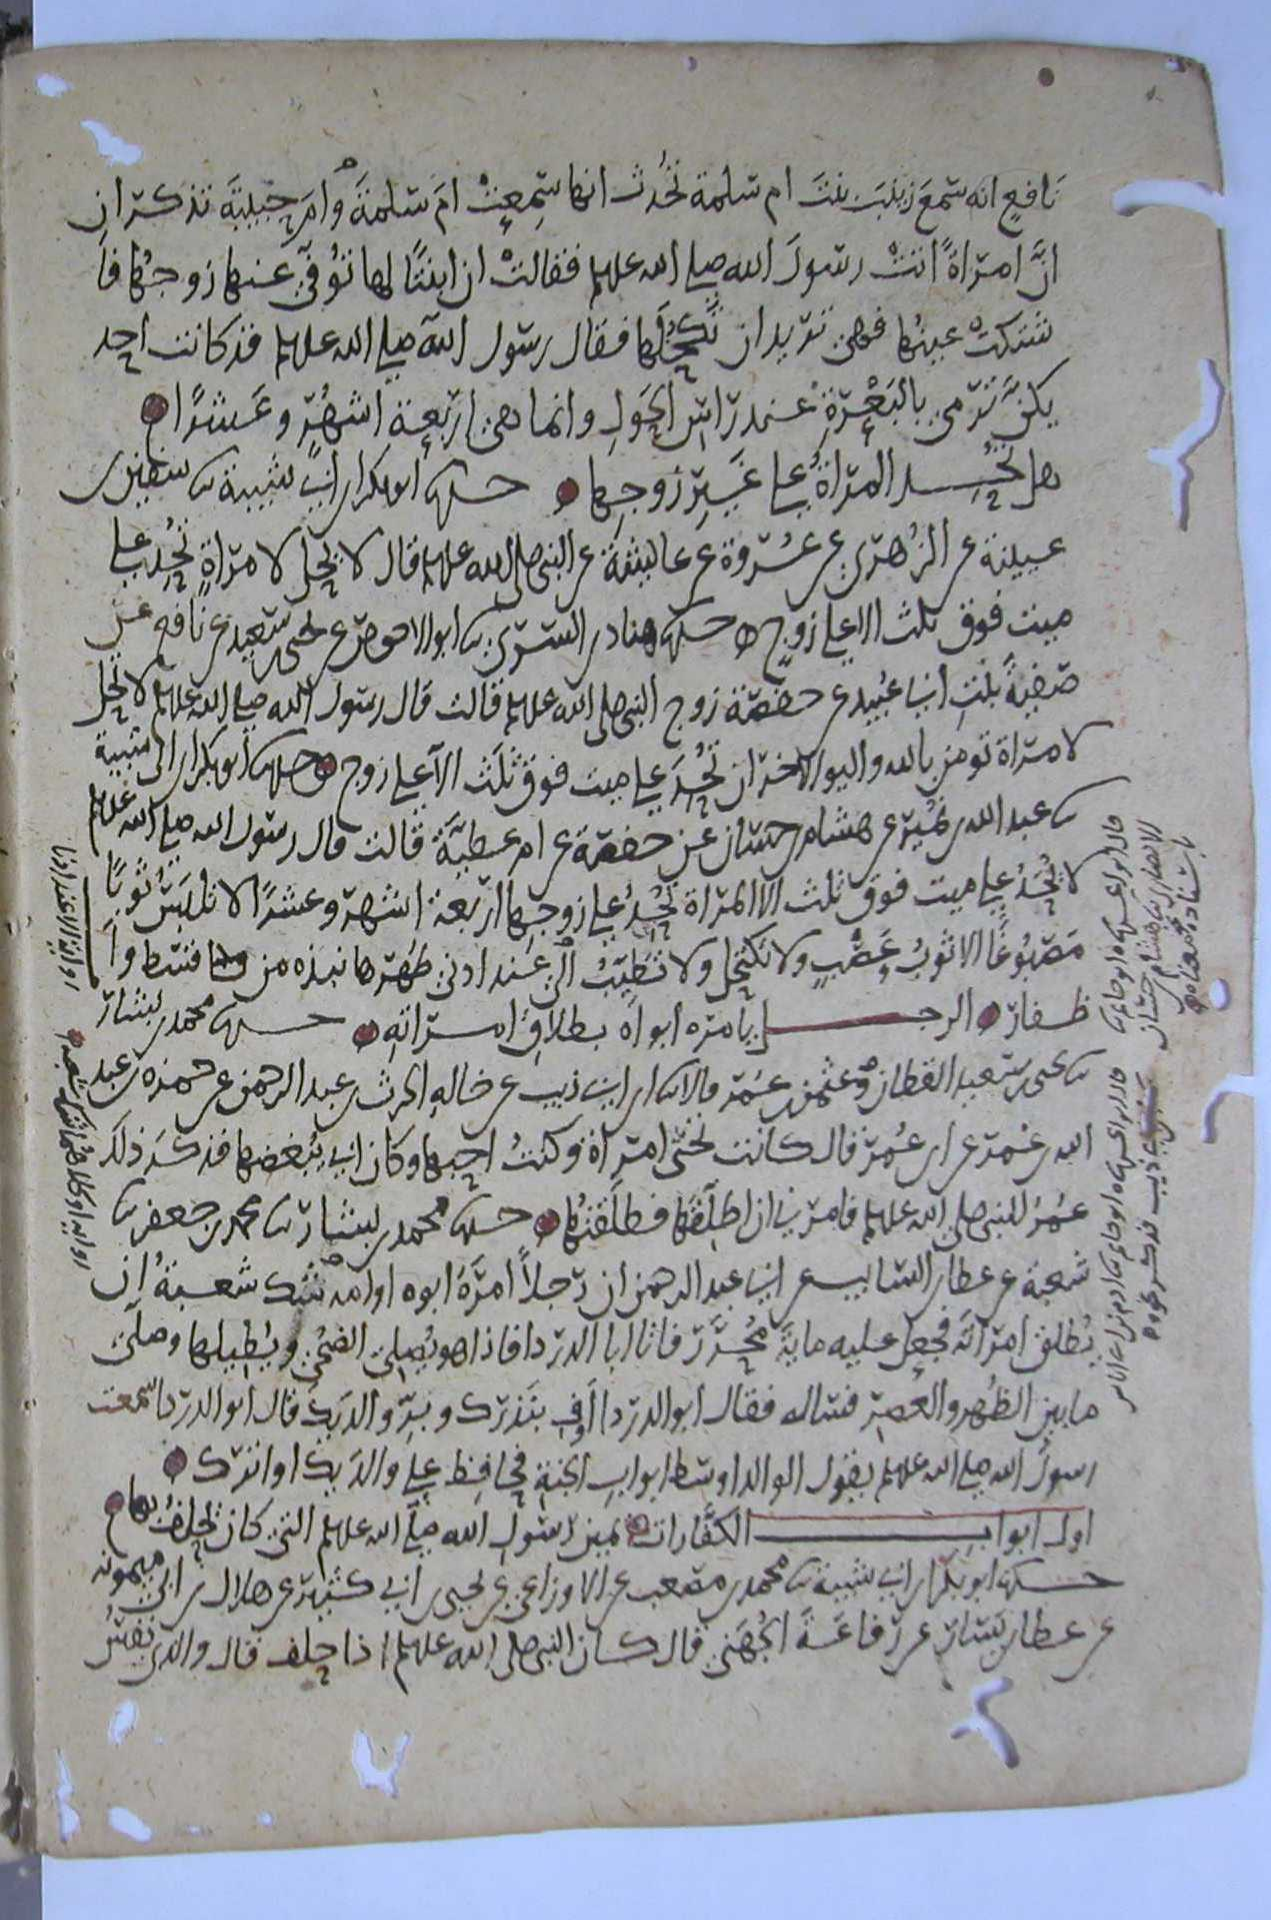 نافع انه سمع زينب بنت ام سلمة تحدث انها سمعت ام سلمة وام حبيبة تذكران
ان امراة اتت رسول الله صلى الله علىه وسلم فقالت ان ابنتا لها توفى عنها زوجها فا
شتكت عينها فهى تريد ان تكحلها فقال رسول الله صلى الله علىه وسلم قد كانت احد
يكن ترمى بالبعرة عند راس الحول وانما هى اربعة اشهر وعشرا
هل تحد المراة على غير زوجها حدثنا ابو بكر بن ابى شيبة ثنا سفين بن
عيينة عن الزهرى عن عروة عن عايشة عن النبى صلى الله علىه وسلم قال لا يحل لامراة تحد على
ميت فوق ثلث الا على زوج حدثنا هناد بن السرى ثنا ابو الاحوص عن يحيى بن سعيد عن نافع عن
صفية بنت ابى عبيد عن حفصة زوج النبى صلى الله علىه وسلم قالت قال رسول الله صلى الله علىه وسلم لا يحل
لامراة تومن بالله واليوم الاخر ان تحد على ميت فوق ثلث الا على زوج حدثنا ابو بكر بن ابى شيبة
ثنا عبد الله بن نمير عن هشام بن حسان عن حفصة عن ام عطية قالت قال رسول الله صلى الله علىه وسلم
لا تحد على ميت فوق ثلث الا المراة تحد على زوجها اربعة اشهر وعشرا لا تلبس ثوبا
مصبوغا الا ثوب عصب ولا تكتحل ولا تطيب الى عند ادنى طهرها نبذه من قسط وا
ظفار الرجل يامره ابواه بطلاق امراته حدثنا محمد بن بشار
ثنا يحيى بن سعيد القطان وعثمن بن عمر قالا ثنا ابن ابى ذيب عن خاله الحرث بن عبد الرحمن عن حمزة بن عبد
الله بن عمر عن ابن عمر قال كانت تحتى امراة وكنت احبها وكان ابى يبغضها فذكر ذلك
عمر للنبى صلى الله علىه وسلم فامرنى ان اطلقها فطلقتها حدثنا محمد بن بشار ثنا محمد بن جعفر ثنا
شعبة عن عطا بن السايب عن ابى عبد الرحمن ان رجلا امره ابوه او امه شك شعبة ان
يطلق امراته فجعل عليه ماية محرر فاتا ابا الدردا فاذا هو يصلى الضحى ويطيلها وصلى
ما بين الظهر والعصر فساله فقال ابو الدردا اوف بنذرك وبر والديك قال ابو الدردا سمعت
رسول الله صلى الله علىه وسلم يقول الوالد اوسط ابواب الجنة فحافظ على والديك او اترك
اول ابواب الكفارات يمين رسول الله صلى الله علىه وسلم التى كان يحلف بها
حدثنا ابو بكر بن ابى شيبة ثنا محمد بن مصعب عن الاوزاعى عن يحيى بن ابى كثير عن هلال بن ابى ميمونة
عن عطا بن يسار عن رفاعة الجهنى قال كان النبى صلى الله علىه وسلم اذا حلف قال والذى نفس
قال ابو الحسن ثنا ابو حاتم ثنا
الانصارى ثنا هشام بن حسان
باسناده معناه